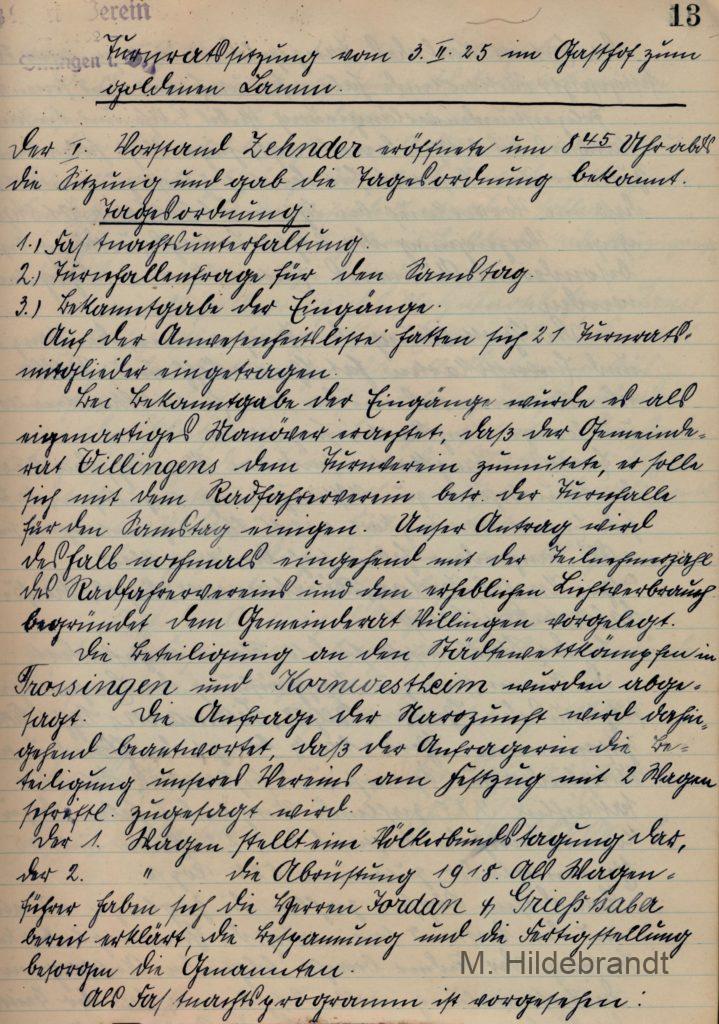 Verein
13
Villingen
Turnratssitzung vom 3. II. 25 im Gasthof zum
goldenen Lamm.
Der I. Vorstand Zehnder eröffnete um 8 45 Uhr abds
die Sitzung und gab die Tagesordnung bekannt.
Tagesordnung:
1.) Fastnachtsunterhaltung.
2.) Turnhallenfrage für den Samstag.
3.) Bekanntgabe der Eingänge.
Auf der Anwesenheitsliste hatten sich 21 Turnrats-
mitglieder eingetragen.
Bei Bekanntgabe der Eingänge wurde es als
eigenartiges Manöver erachtet, daß der Gemeinde-
rat Villingens dem Turnverein zumutete, er solle
sich mit dem Radfahrerverein betr. der Turnhalle
für den Samstag einigen. Unser Antrag wird
deshalb nochmals eingehend mit der Teilnehmerzahl
des Radfahrervereins und dem erheblichen Lichtverbrauch
begründet dem Gemeinderat Villingen vorgelegt.
Die Beteiligung an den Städtewettkämpfen in
Trossingen und Kornwestheim wurden abge-
sagt. Die Anfrage der Narrozunft wird dahin-
gehend beantwortet, daß der Anfragerin die Be-
teiligung unseres Vereins am Festzug mit 2 Wagen
schriftl. zugesagt wird.
Der 1. Wagen stellt eine Völkerbundstagung dar,
der 2. " die Abrüstung 1918. Als Wagen-
führer haben sich die Herren Jordan & Grießhaber
bereit erklärt, die Bespannung und die Fertigstellung
besorgen die Genannten.
M. Hildebrandt
Als Fastnachtsprogramm ist vorgesehen: